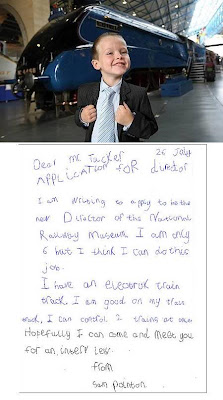 26 July
Dear Mr Tucker
APPLICATION FOR Director
I am writing to apply to be the
new Director of the National
Railway Museum I am only
6 but I think I can do this
job.
I have an electrick train
track. I am good on my train
track, I can control 2 trains at once
Hopefully I can come and meet you
for an interview.
from
Sam Pointon